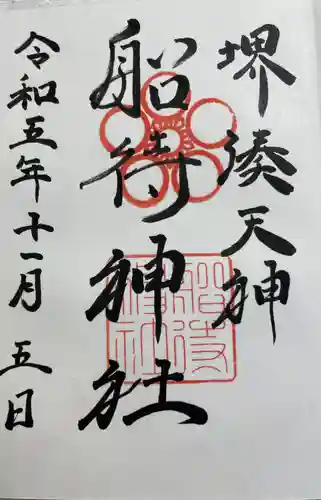 堺湊天神
船待神社
令和五年十一月五日
船待神社